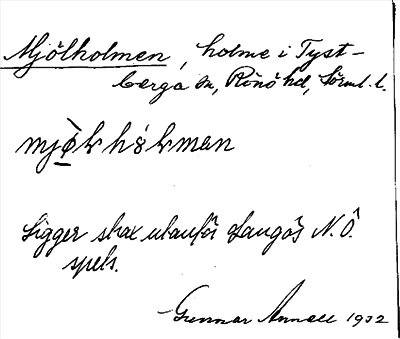 Mjölholmen, holme i Tyst-
berga sn, Rönö hd, Sörml. l.
Ligger strax utanför Langös N.Ö.
spets.
Gunnar Annell 1932